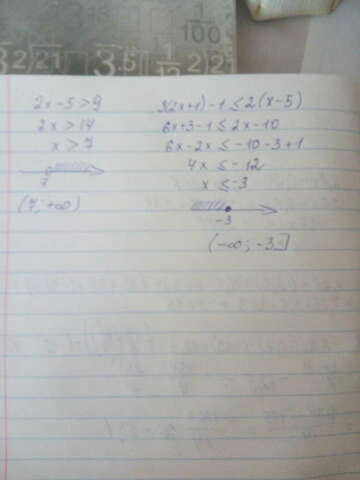 1/100
3/2 2) 21 3.5 1/12 2)2
2x-5>9
2x>14
x>7
7
(7;+∞)
3(2x+1)-1≤2(x-5)
6x+3-1≤2x-10
6x-2x≤-10-3+1
4x≤-12
x≤-3
-3
(-∞;-3]